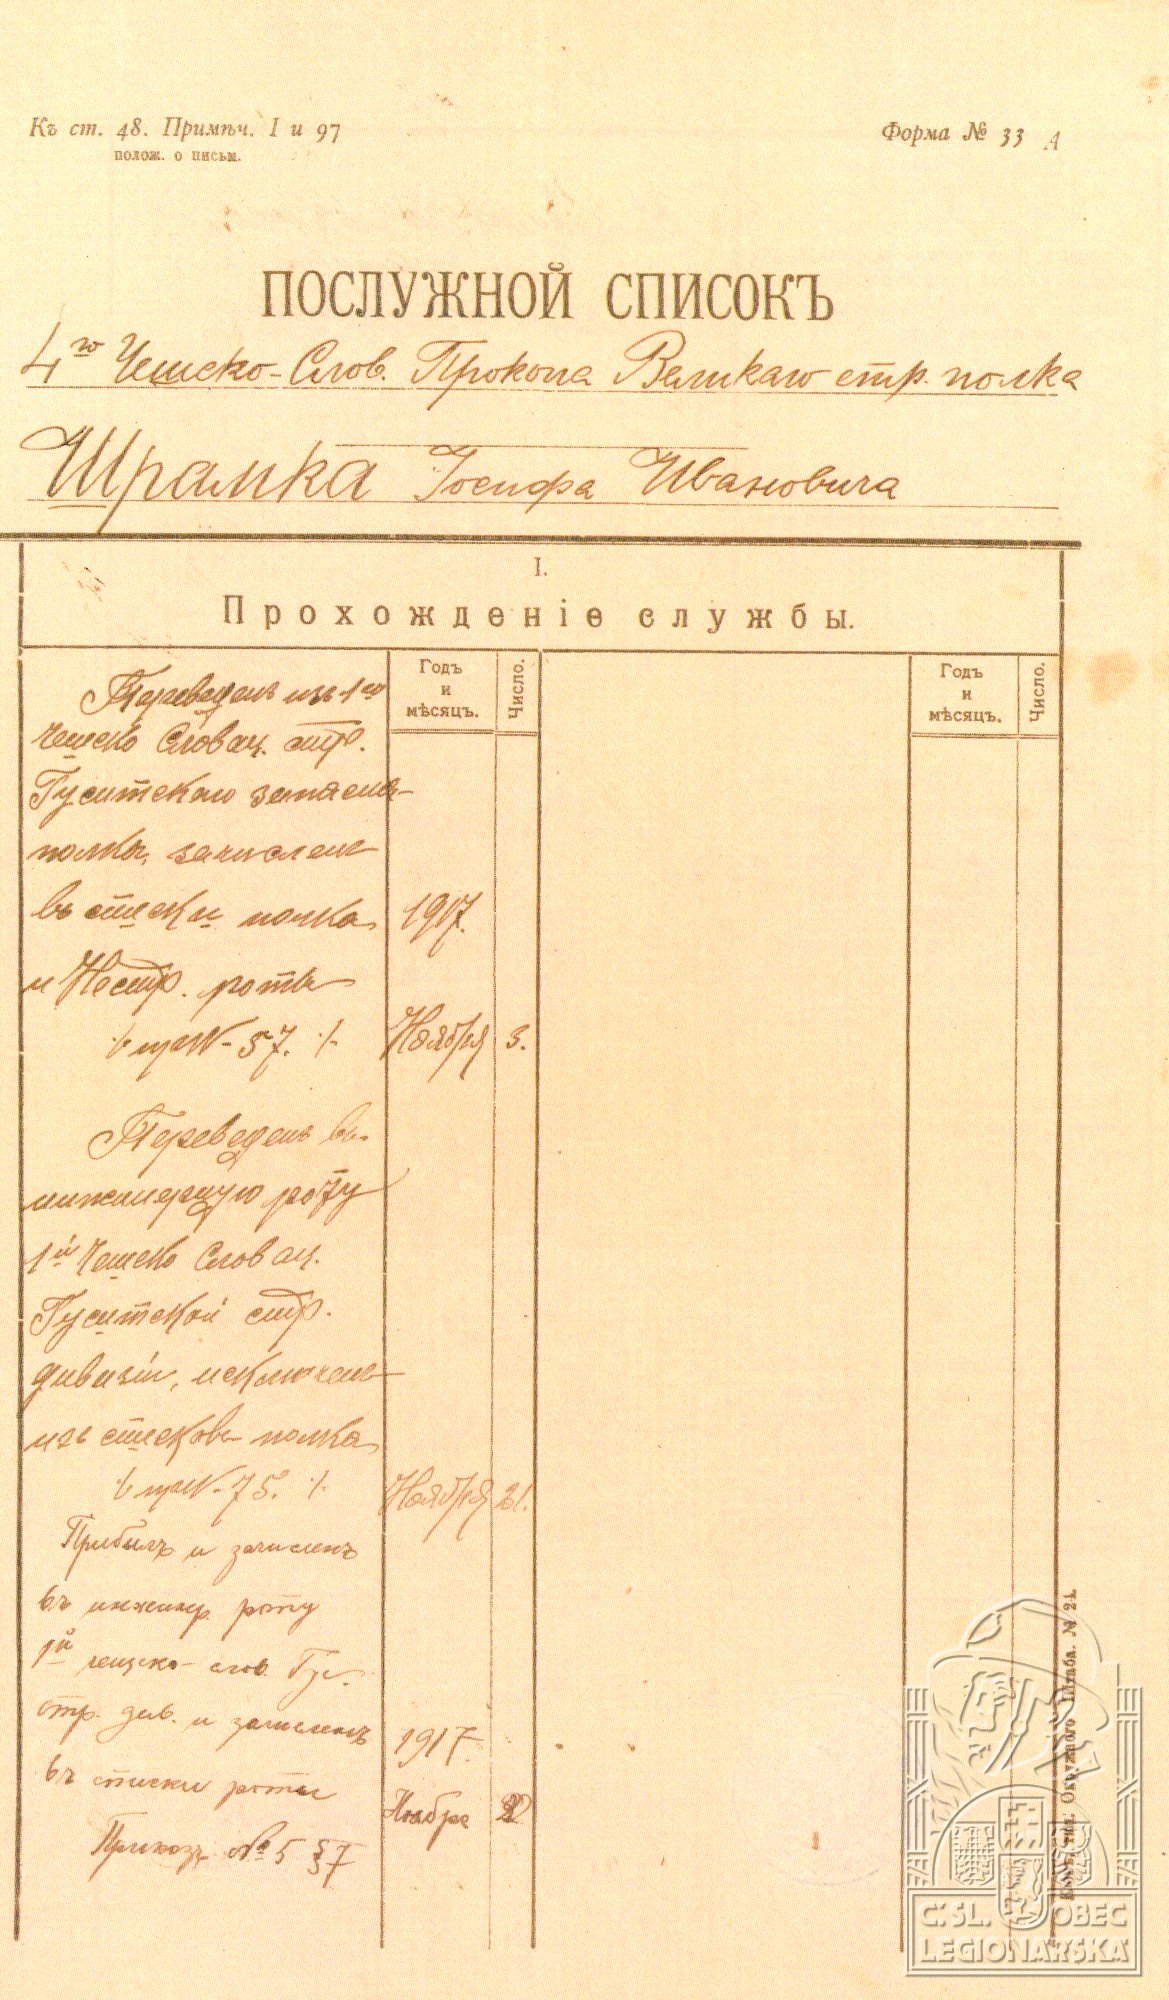 Къ ст. 48. Примѣч. I и 97
полож. о письм.
Форма № 33 А
ПОСЛУЖНОЙ СПИСОКЪ
4го Чешско-Слов. Прокопа Великаго стр. полка
Шрамка Іосифа Ивановича
I.
Прохожденіе службы.
Годъ и мѣсяцъ.
Число.
Годъ и мѣсяцъ.
Число.
Переведенъ изъ 1го
Чешско Словац. стр.
Гуситскаго запасн.
полка, зачисленъ
въ списки полка 1917.
и Нестр. роты
№ 57. Ноября 3.
Переведенъ въ
инженерную роту
1й Чешско Словац.
Гуситской стр.
дивизіи, исключенъ
изъ списковъ полка
№ 75. Ноября 21.
Прибылъ и зачисленъ
въ инженер роту
1й чешско-слов. Гус.
стр. див. и зачисленъ 1917.
въ списки роты Ноября
Приказъ № 5 § 7
Окружного Штаба. № 21.
Č. SL. OBEC
LEGIONÁŘSKÁ